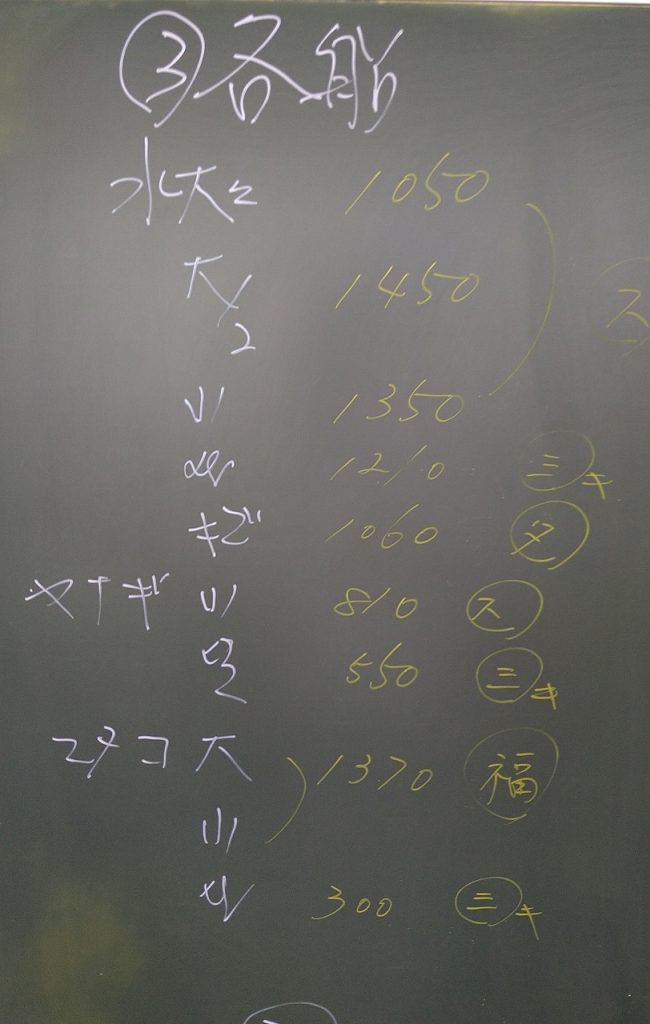 ③各船
水大2 1050
大 1450 ス
2
小 1350
1210 三キ
キズ 1060 タ
ヤナギ 小 810 ス
550 三キ
マダコ 大 1370 福
小
300 三キ